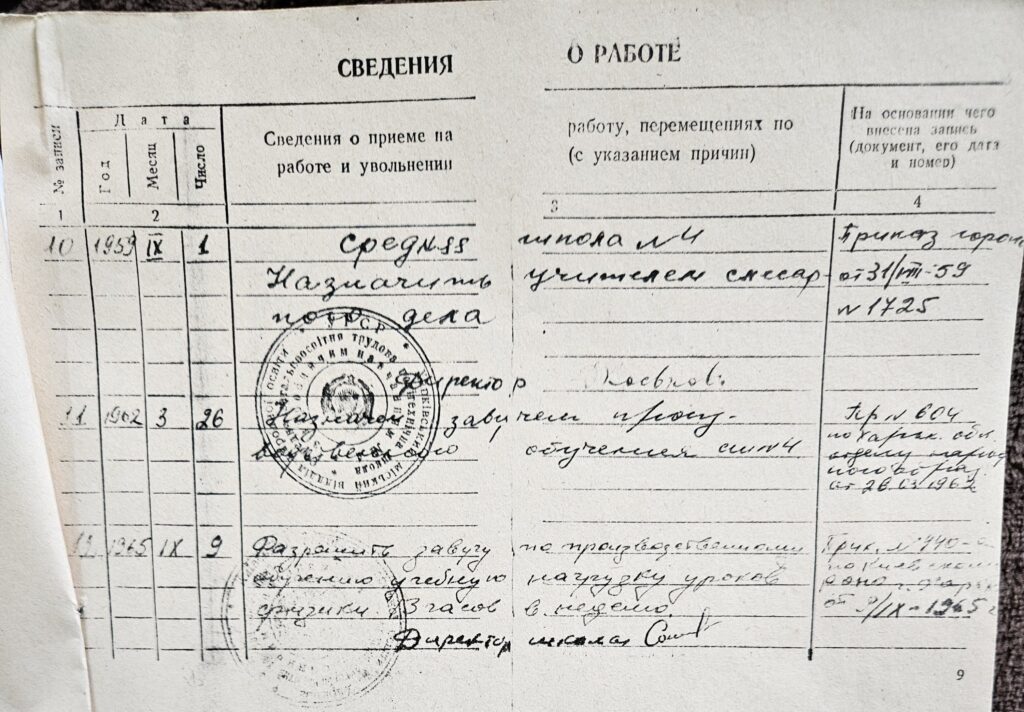 СВЕДЕНИЯ О РАБОТЕ
№ записи
Дата
Год
Месяц
Число
Сведения о приеме на работу, перемещениях по
работе и увольнении (с указанием причин)
На основании чего
внесена запись
(документ, его дата
и номер)
1 2 3 4
10 1959 IX 1 Средняя школа №4 Приказ
Назначить учителем слесар- от 31/VIII-59
ного дела №1725
Директор
11 1962 3 26 Назначен завучем произ- Пр №604
водственного обучения сш №4 по Харьк. обл.
отделу народ
ного образ
от 26.03.1962
12 1965 IX 9 Разрешить завучу по производственному Прик.
обучению учебную нагрузку уроков по Киевском
физики 3 часов в неделю
от 9/IX-1965 г
Директор школы
УРСР
9